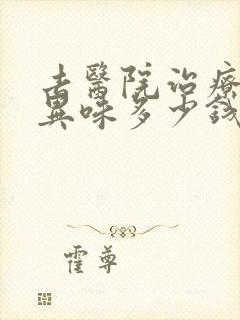 去醫院治療
異味多少錢
霍尊